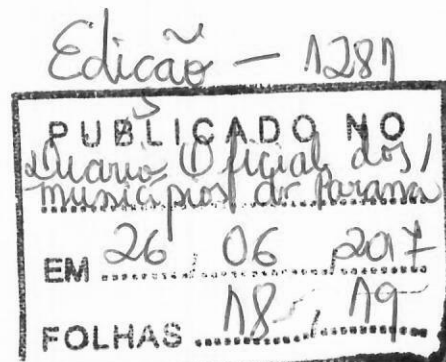 Edição - 1281
PUBLICADO NO
Diário Oficial dos
municípios do Paraná
EM 26, 06, 2017
FOLHAS 18, 19